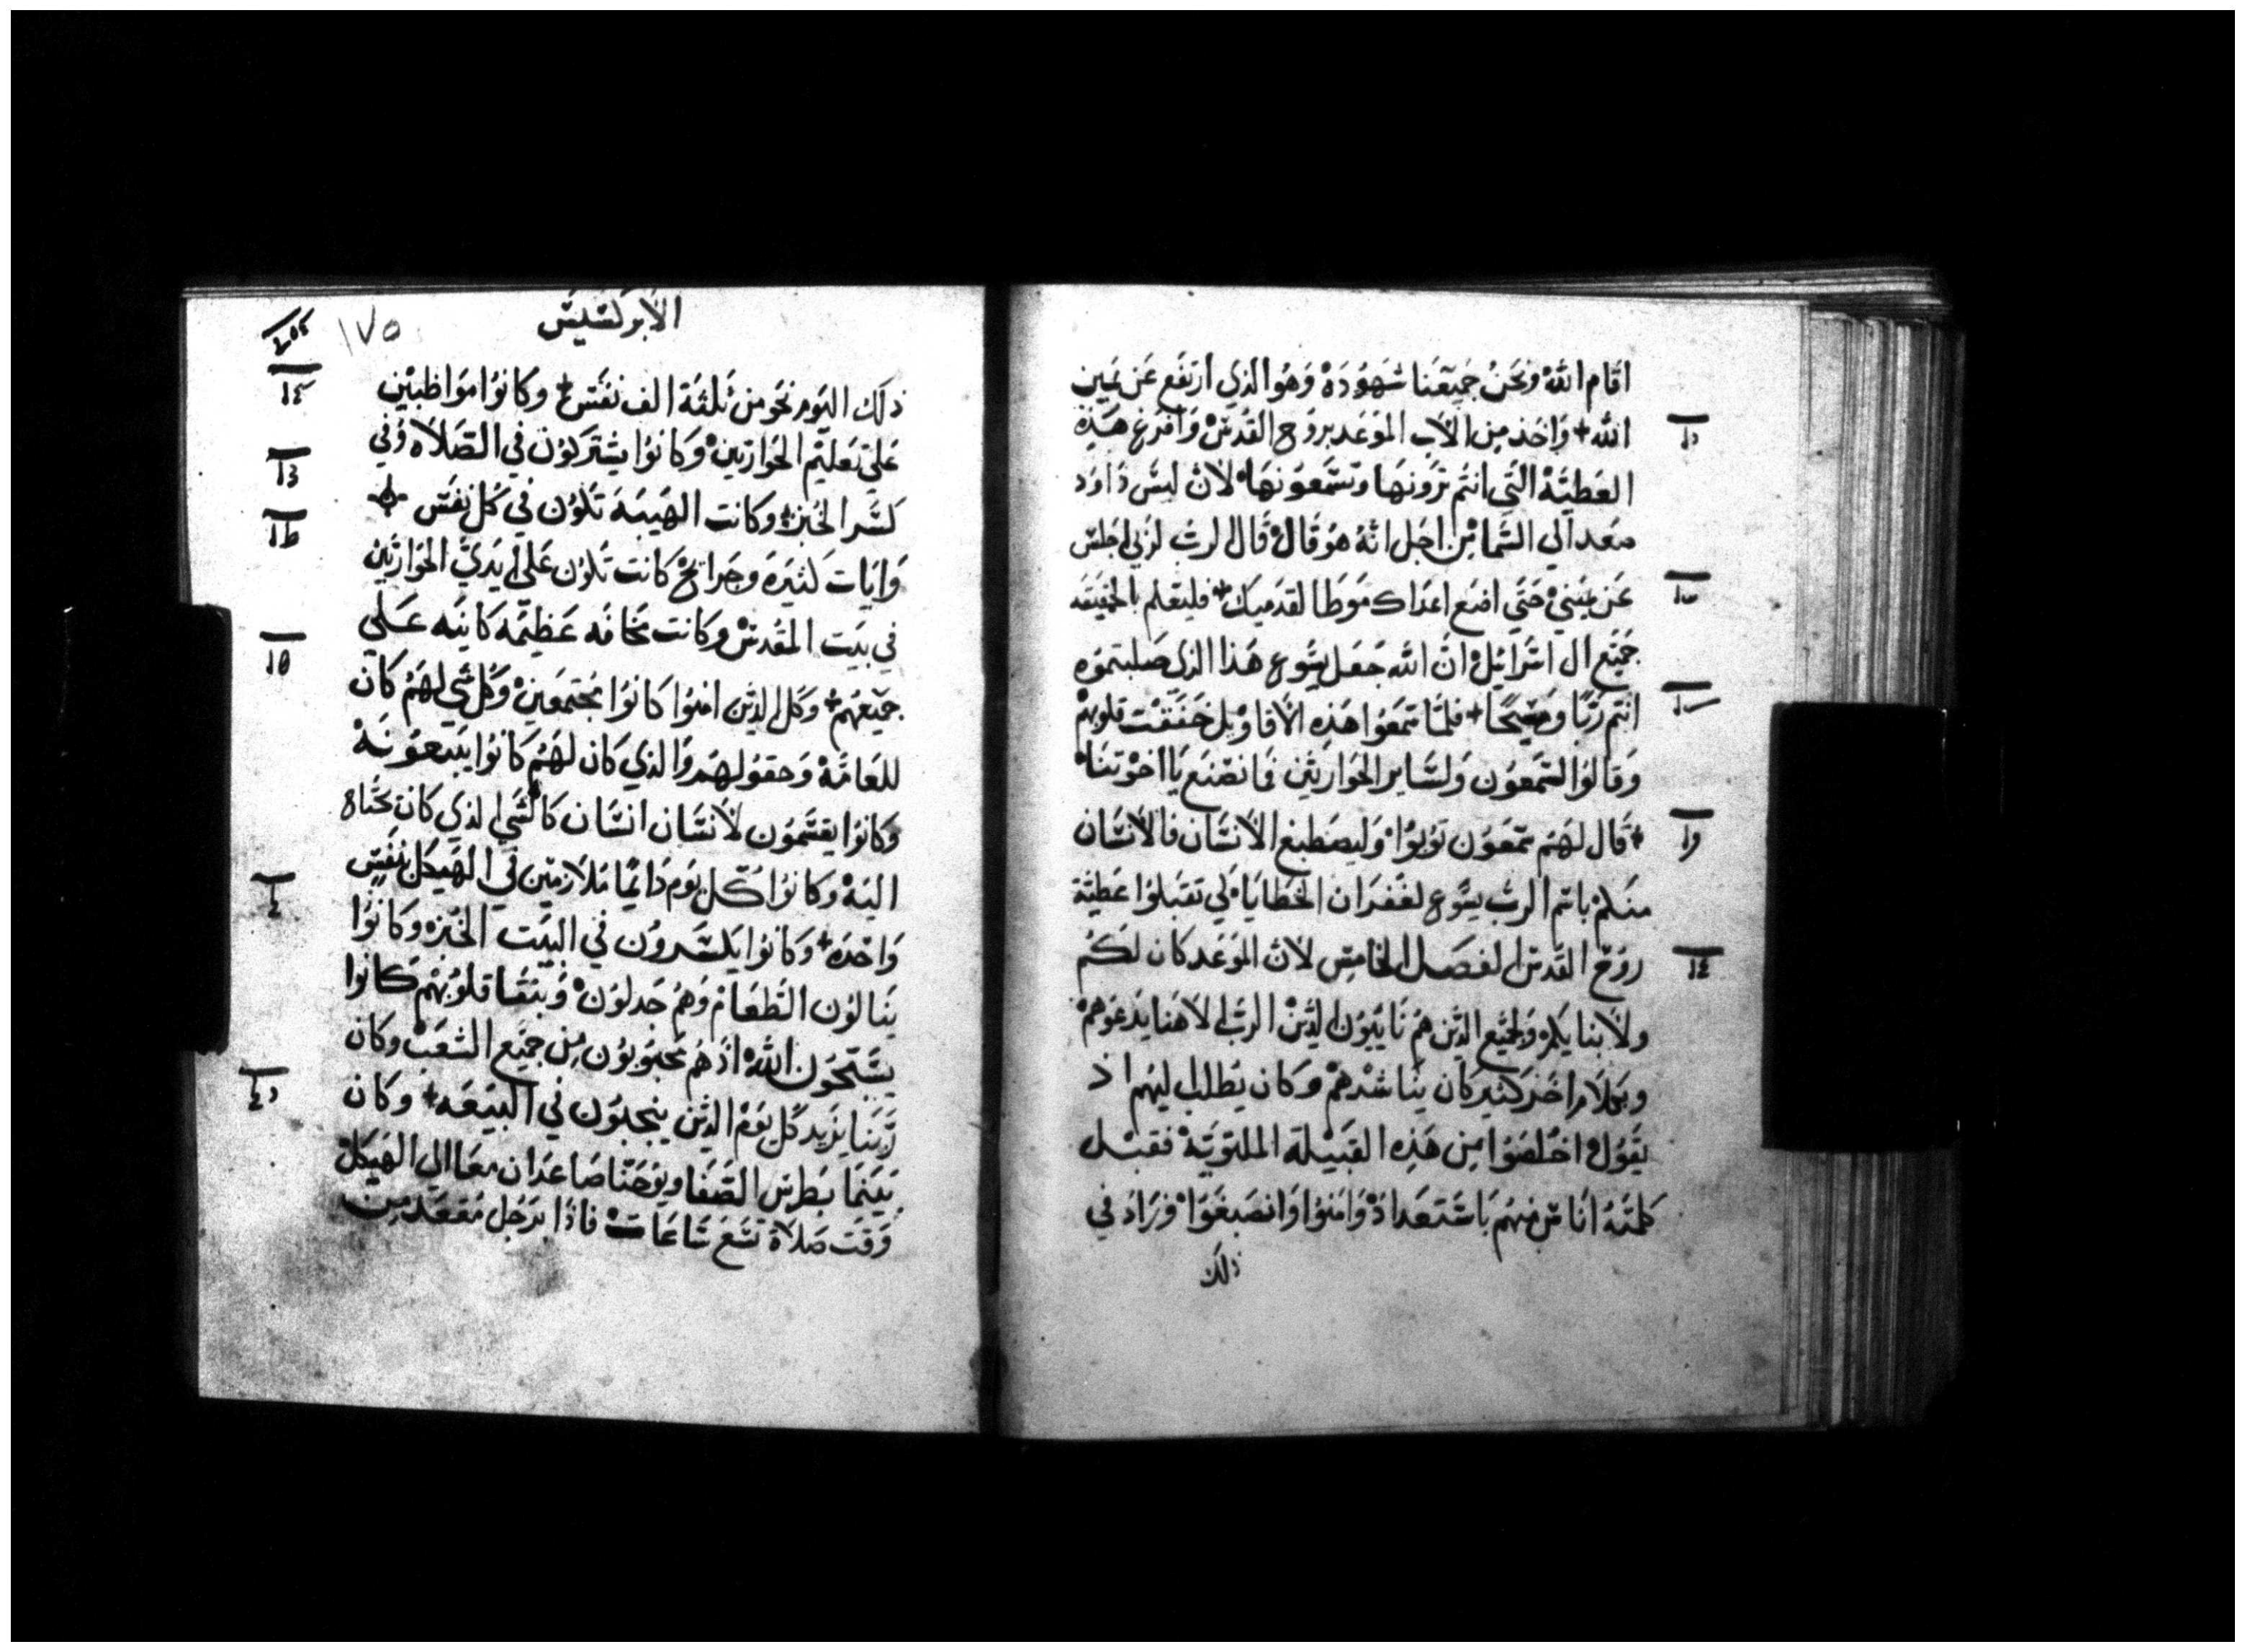 اقام الله ونحن جميعنا شهوده وهو الذي ارتفع عن يمين
الله + واخذ من الاب الموعد بروح القدس وافرغ هذه
العطية التي انتم ترونها وتسمعونها لان ليس داود
صعد الي السما من اجل انه هو قال قال الرب لربي اجلس
عن يميني حتي اضع اعداك موطا لقدميك + فليعلم بالحقيقه
جميع ال اسرائيل ان الله جعل يسوع هذا الذي صلبتموه
انتم ربا ومسيحا + فلما سمعوا هذه الاقاويل خفقت قلوبهم
وقالوا لسمعون ولساير الحواريين فما نصنع يا اخوتنا
+ قال لهم سمعون توبوا وليصطبغ الانسان فالانسان
منكم باسم الرب يسوع لغفران الخطايا لكي تقبلوا عطية
روح القدس الفصل الخامس لان الموعد كان لكم
ولابنايكم ولجميع الذين هم نايبون الذين الرب الاهنا يدعوهم
وبكلام اخر كثير كان يناشدهم وكان يطلب اليهم اذ
يقول اخلصوا من هذه القبيلة الملتوية فقبل
كلمته اناس منهم باستعداد وامنوا وانصبغوا وزاد في
ذلك
الابركسيس
١٧٥
ذلك اليوم نحو من ثلثة الف نفس + وكانوا مواظبين
علي تعليم الحواريين وكانوا يشتركون في الصلاه وفي
كسر الخبز + وكانت الهيبة تكون في كل نفس +
وايات كثيرة وجرايح كانت تكون علي ايدي الحواريين
في بيت المقدس وكانت مخافه عظيمه كاينه علي
جميعهم + وكل الذين امنوا كانوا مجتمعين وكل شي لهم كان
للعامة وحقولهم والذي كان لهم كانوا يبيعونه
وكانوا يقسمون لانسان انسان كالشي الذي كان محتاه
اليه وكانوا كل يوم دايما ملازمين في الهيكل بنفس
واحده + وكانوا يكسرون في البيت الخبز وكانوا
ينالون الطعام وهم جدلون وبنقا قلوبهم كانوا
يسبحون الله اذ هم محبوبون من جميع الشعب وكان
ربنا يزيد كل يوم الذين ينجبون في البيعه + وكان
بينما بطرس الصفا ويوحنا صاعدان معا الي الهيكل
وقت صلاة تسع ساعات فاذا برجل مقعد من